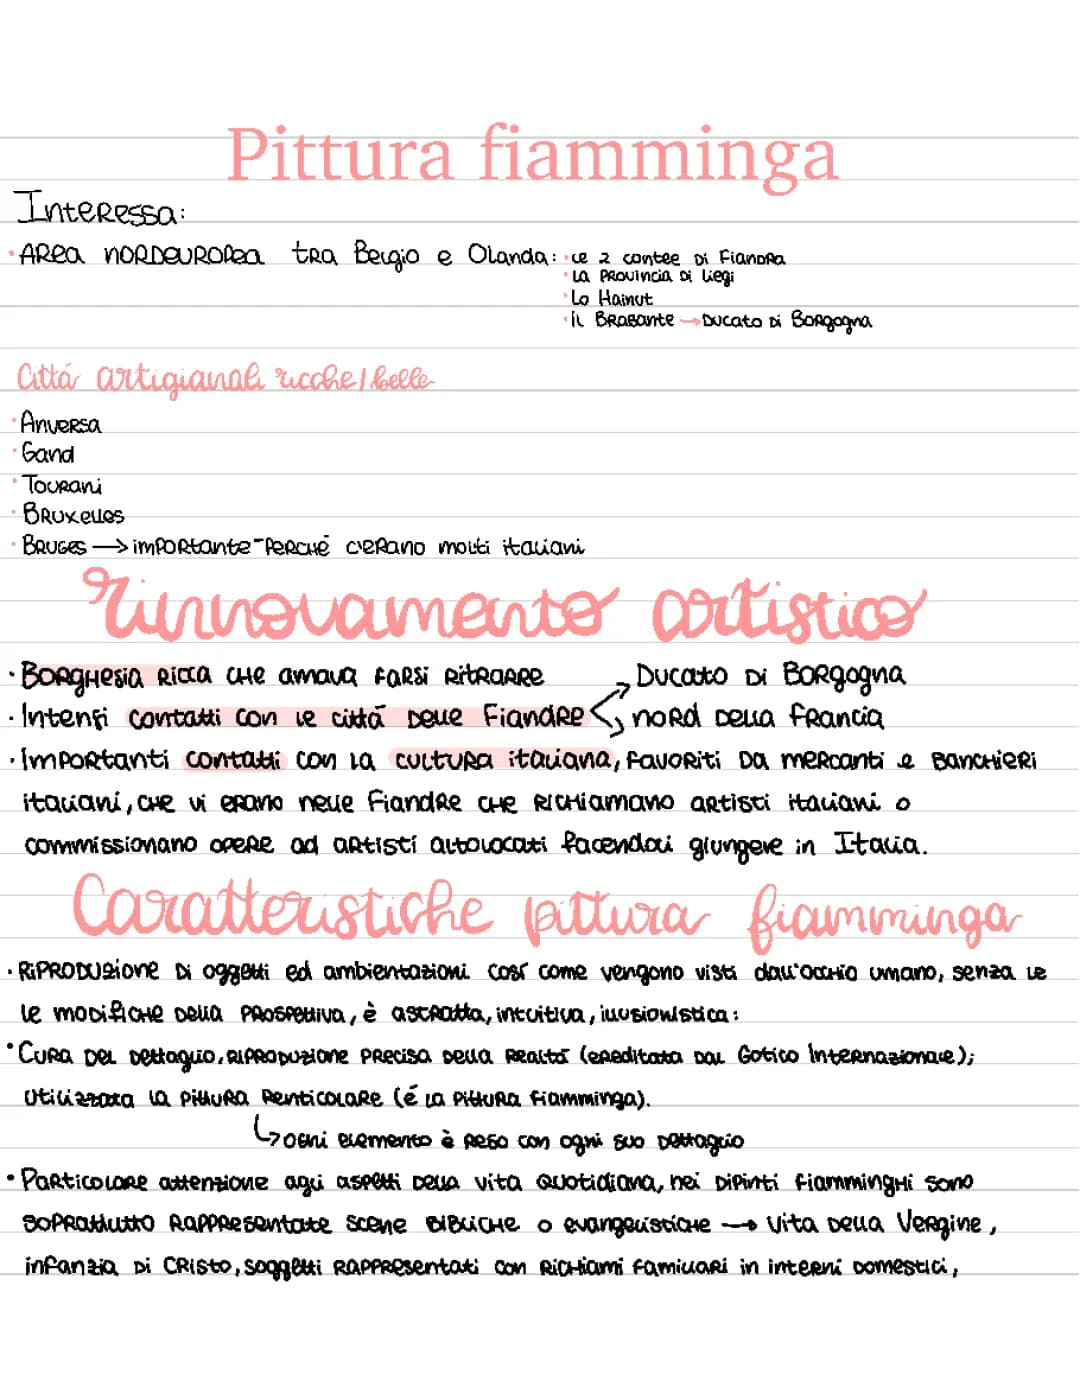 Pittura fiamminga
Interessa:
• Area nordeuropea tra Belgio e Olanda: • le 2 contee di Fiandra
• la Provincia di Liegi
• Lo Hainut
• il Brabante → Ducato di Borgogna
Cittá artigianali ricche/belle
• Anversa
• Gand
• Tourani
• Bruxelles
• Bruges → importante - perché c'erano molti italiani
rinnovamento artistico
• Borghesia ricca che amava farsi ritrarre → Ducato di Borgogna
• Intensi contatti con le cittá delle Fiandre → nord della francia
• Importanti contatti con la cultura italiana, favoriti da mercanti e banchieri
italiani, che vi erano nelle Fiandre che richiamano artisti italiani o
commissionano opere ad artisti altolocati facendoi giungere in Italia.
Caratteristiche pittura fiamminga
• Riproduzione di oggetti ed ambientazioni così come vengono visti dall'occhio umano, senza le
le modifiche della prospettiva, è astratta, intuitiva, illusionistica:
• Cura del dettaglio, riproduzione precisa della realtá (ereditata dal Gotico Internazionale);
utilizzata la pittura lenticolare (é la pittura fiamminga).
↳ ogni elemento è reso con ogni suo dettaglio
• Particolare attenzione agli aspetti della vita quotidiana, nei dipinti fiamminghi sono
soprattutto rappresentate scene bibliche o evangelistiche → vita della Vergine,
infanzia di Cristo, soggetti rappresentati con richiami familiari in interni domestici,